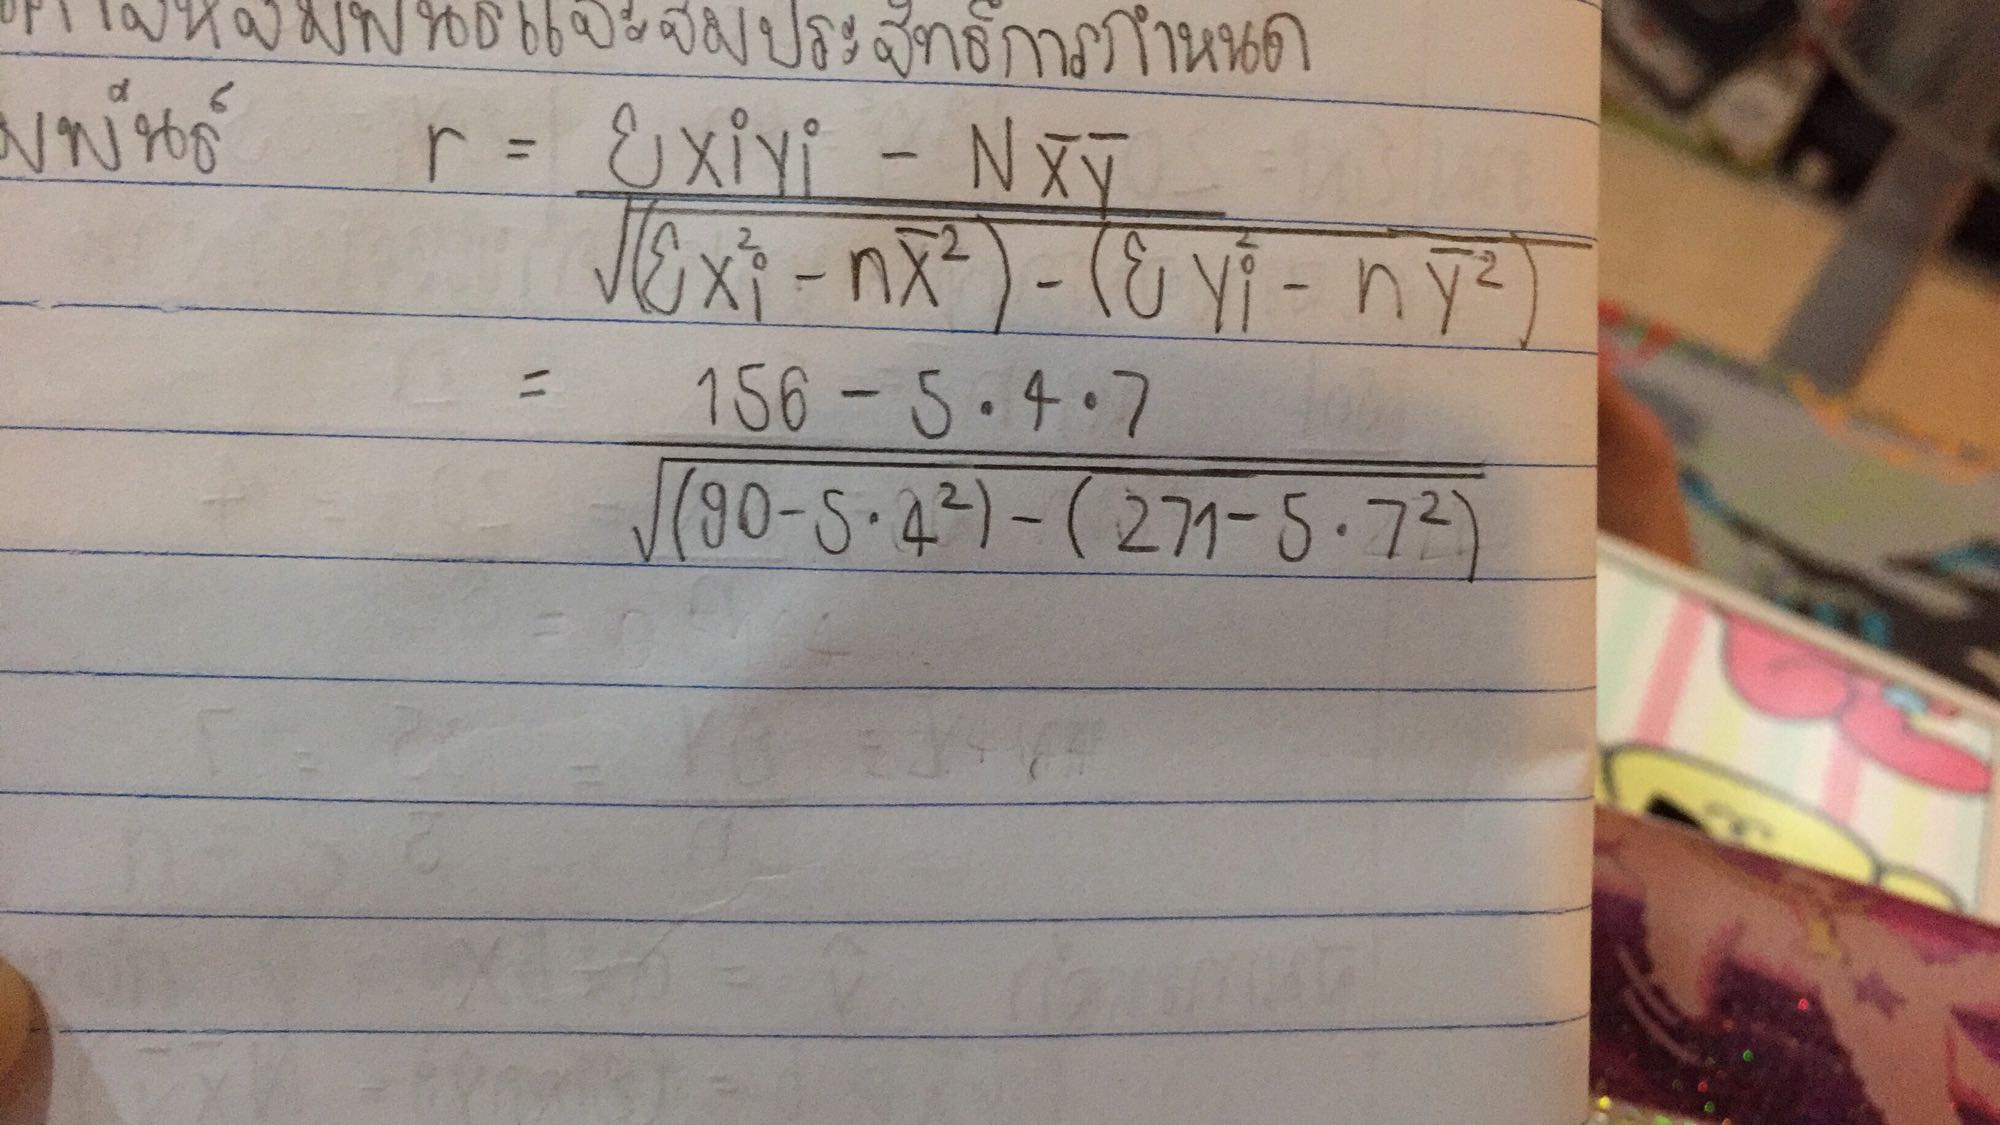 สหสัมพันธ์และสัมประสิทธิ์การกำหนด
มพันธ์ r = Σxiyi - Nx̄ȳ
√(Σxi² - nx̄²) - (Σyi² - nȳ²)
= 156 - 5 · 4 · 7
√(90 - 5 · 4²) - (271 - 5 · 7²)